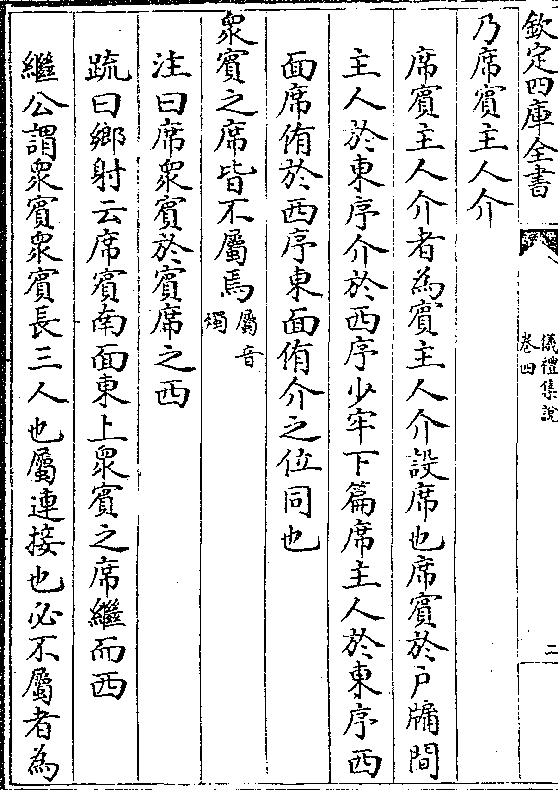 欽定四庫全書
儀禮集說
卷四
二
乃席賓主人介
席賓主人介者為賓主人介設席也席賓於戶牖間
主人於東序介於西序少牢下篇席主人於東序西
面席侑於西序東面侑介之位同也
衆賓之席皆不屬焉屬音燭
注曰席衆賓於賓席之西
疏曰鄉射云席賓南面東上衆賓之席繼而西
繼公謂衆賓衆賓長三人也屬連接也必不屬者為